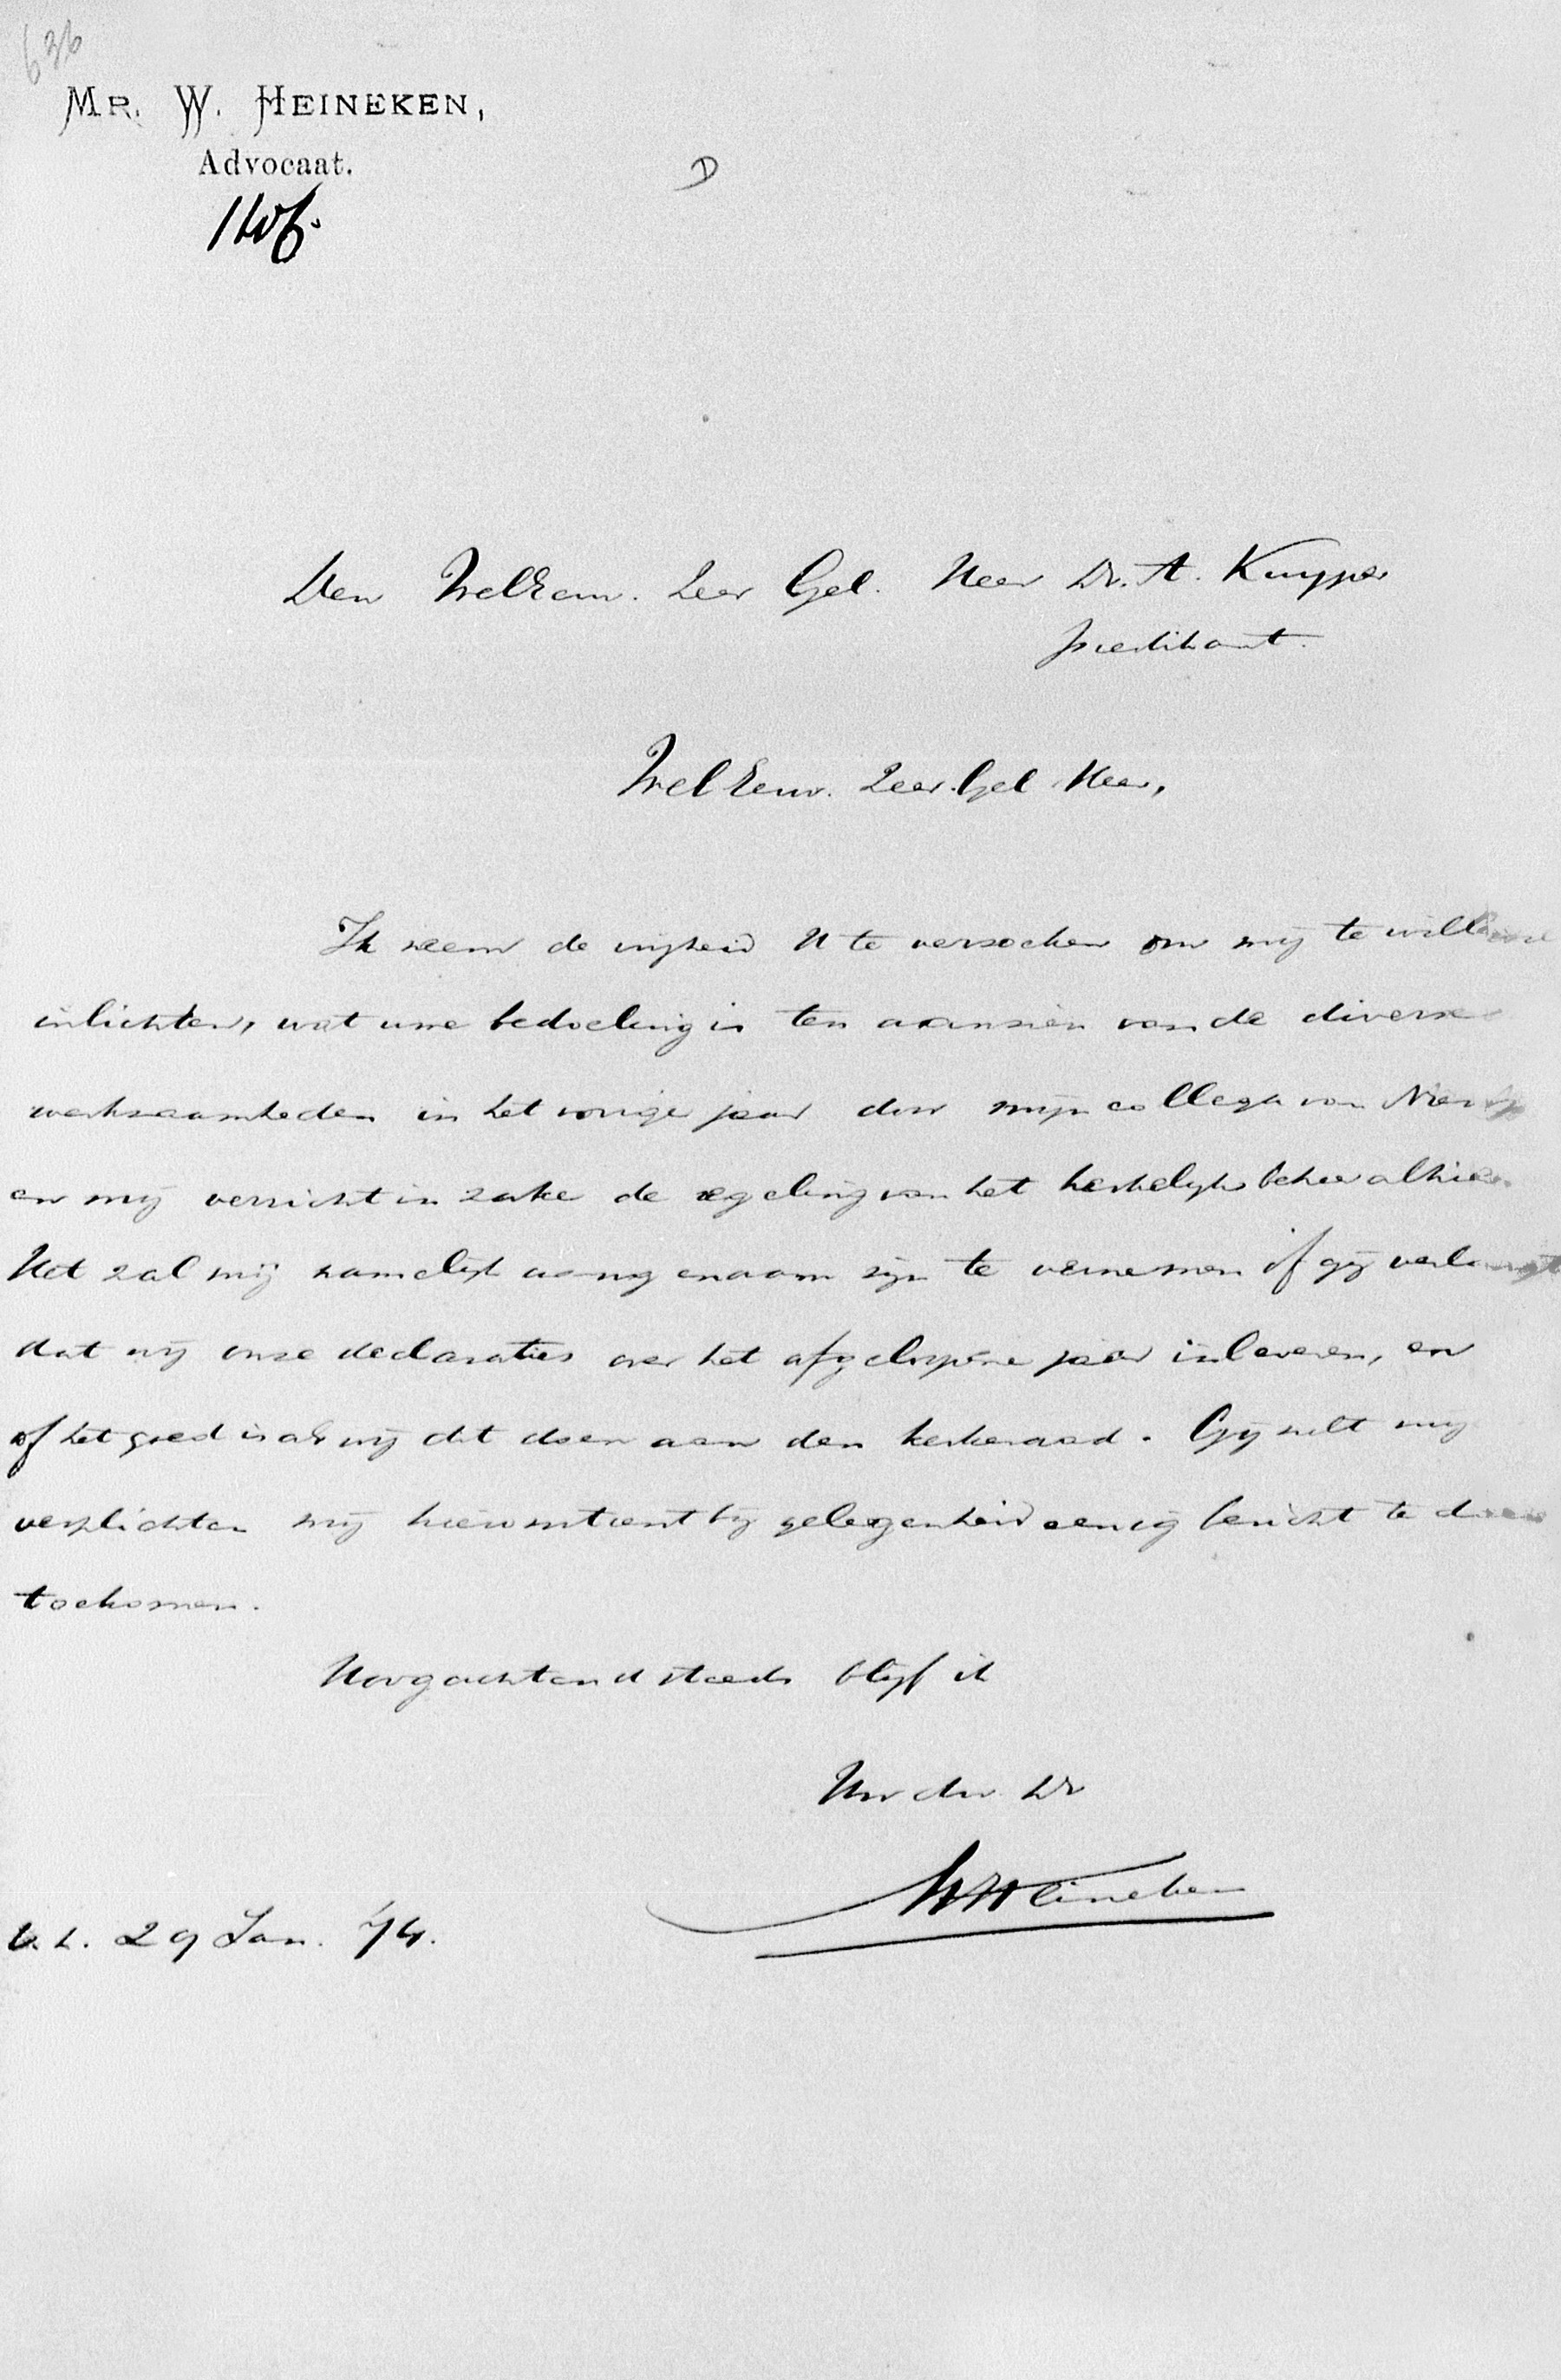 636
MR. W. HEINEKEN,
Advocaat.
D
Den WelEerw. Zeer Gel. Heer Dr. A. Kuyper
predikant.
WelEerw. Zeer Gel Heer,
Ik neem de vrijheid U te verzoeken om mij te willen
inlichten, wat uwe bedoeling is ten aanzien van de diverse
werkzaamheden in het vorige jaar door mijn collega van
en mij verricht in zake de regeling van het kerkelijk beheer alhier.
Het zal mij namelijk aangenaam zijn te vernemen of gij verlangt
dat wij onze declaraties over het afgeloopene jaar inleveren, en
of het goed is als wij dit doen aan den kerkeraad. Gij zult mij
verplichten mij hieromtrent bij gelegenheid eenig bericht te doen
toekomen.
Hoogachtend steeds blijf ik
Uw dw. Dr
WHeineken
29 Jan. '74.